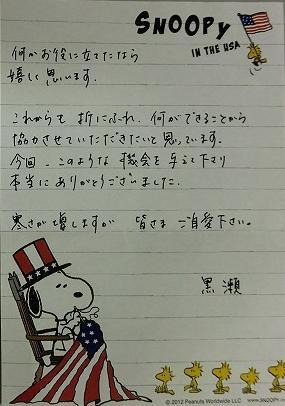 SNOOPY
IN THE USA
何かお役に立てたなら
嬉しく思います。
これからも 折にふれ、何ができることから
協力させていただきたいと思っています。
今回、このような 機会を与えて下さり
本当にありがとうございました。
寒さが増しますが 皆さま ご自愛下さい。
黒瀬
© 2012 Peanuts Worldwide LLC
www.SNOOPY.co